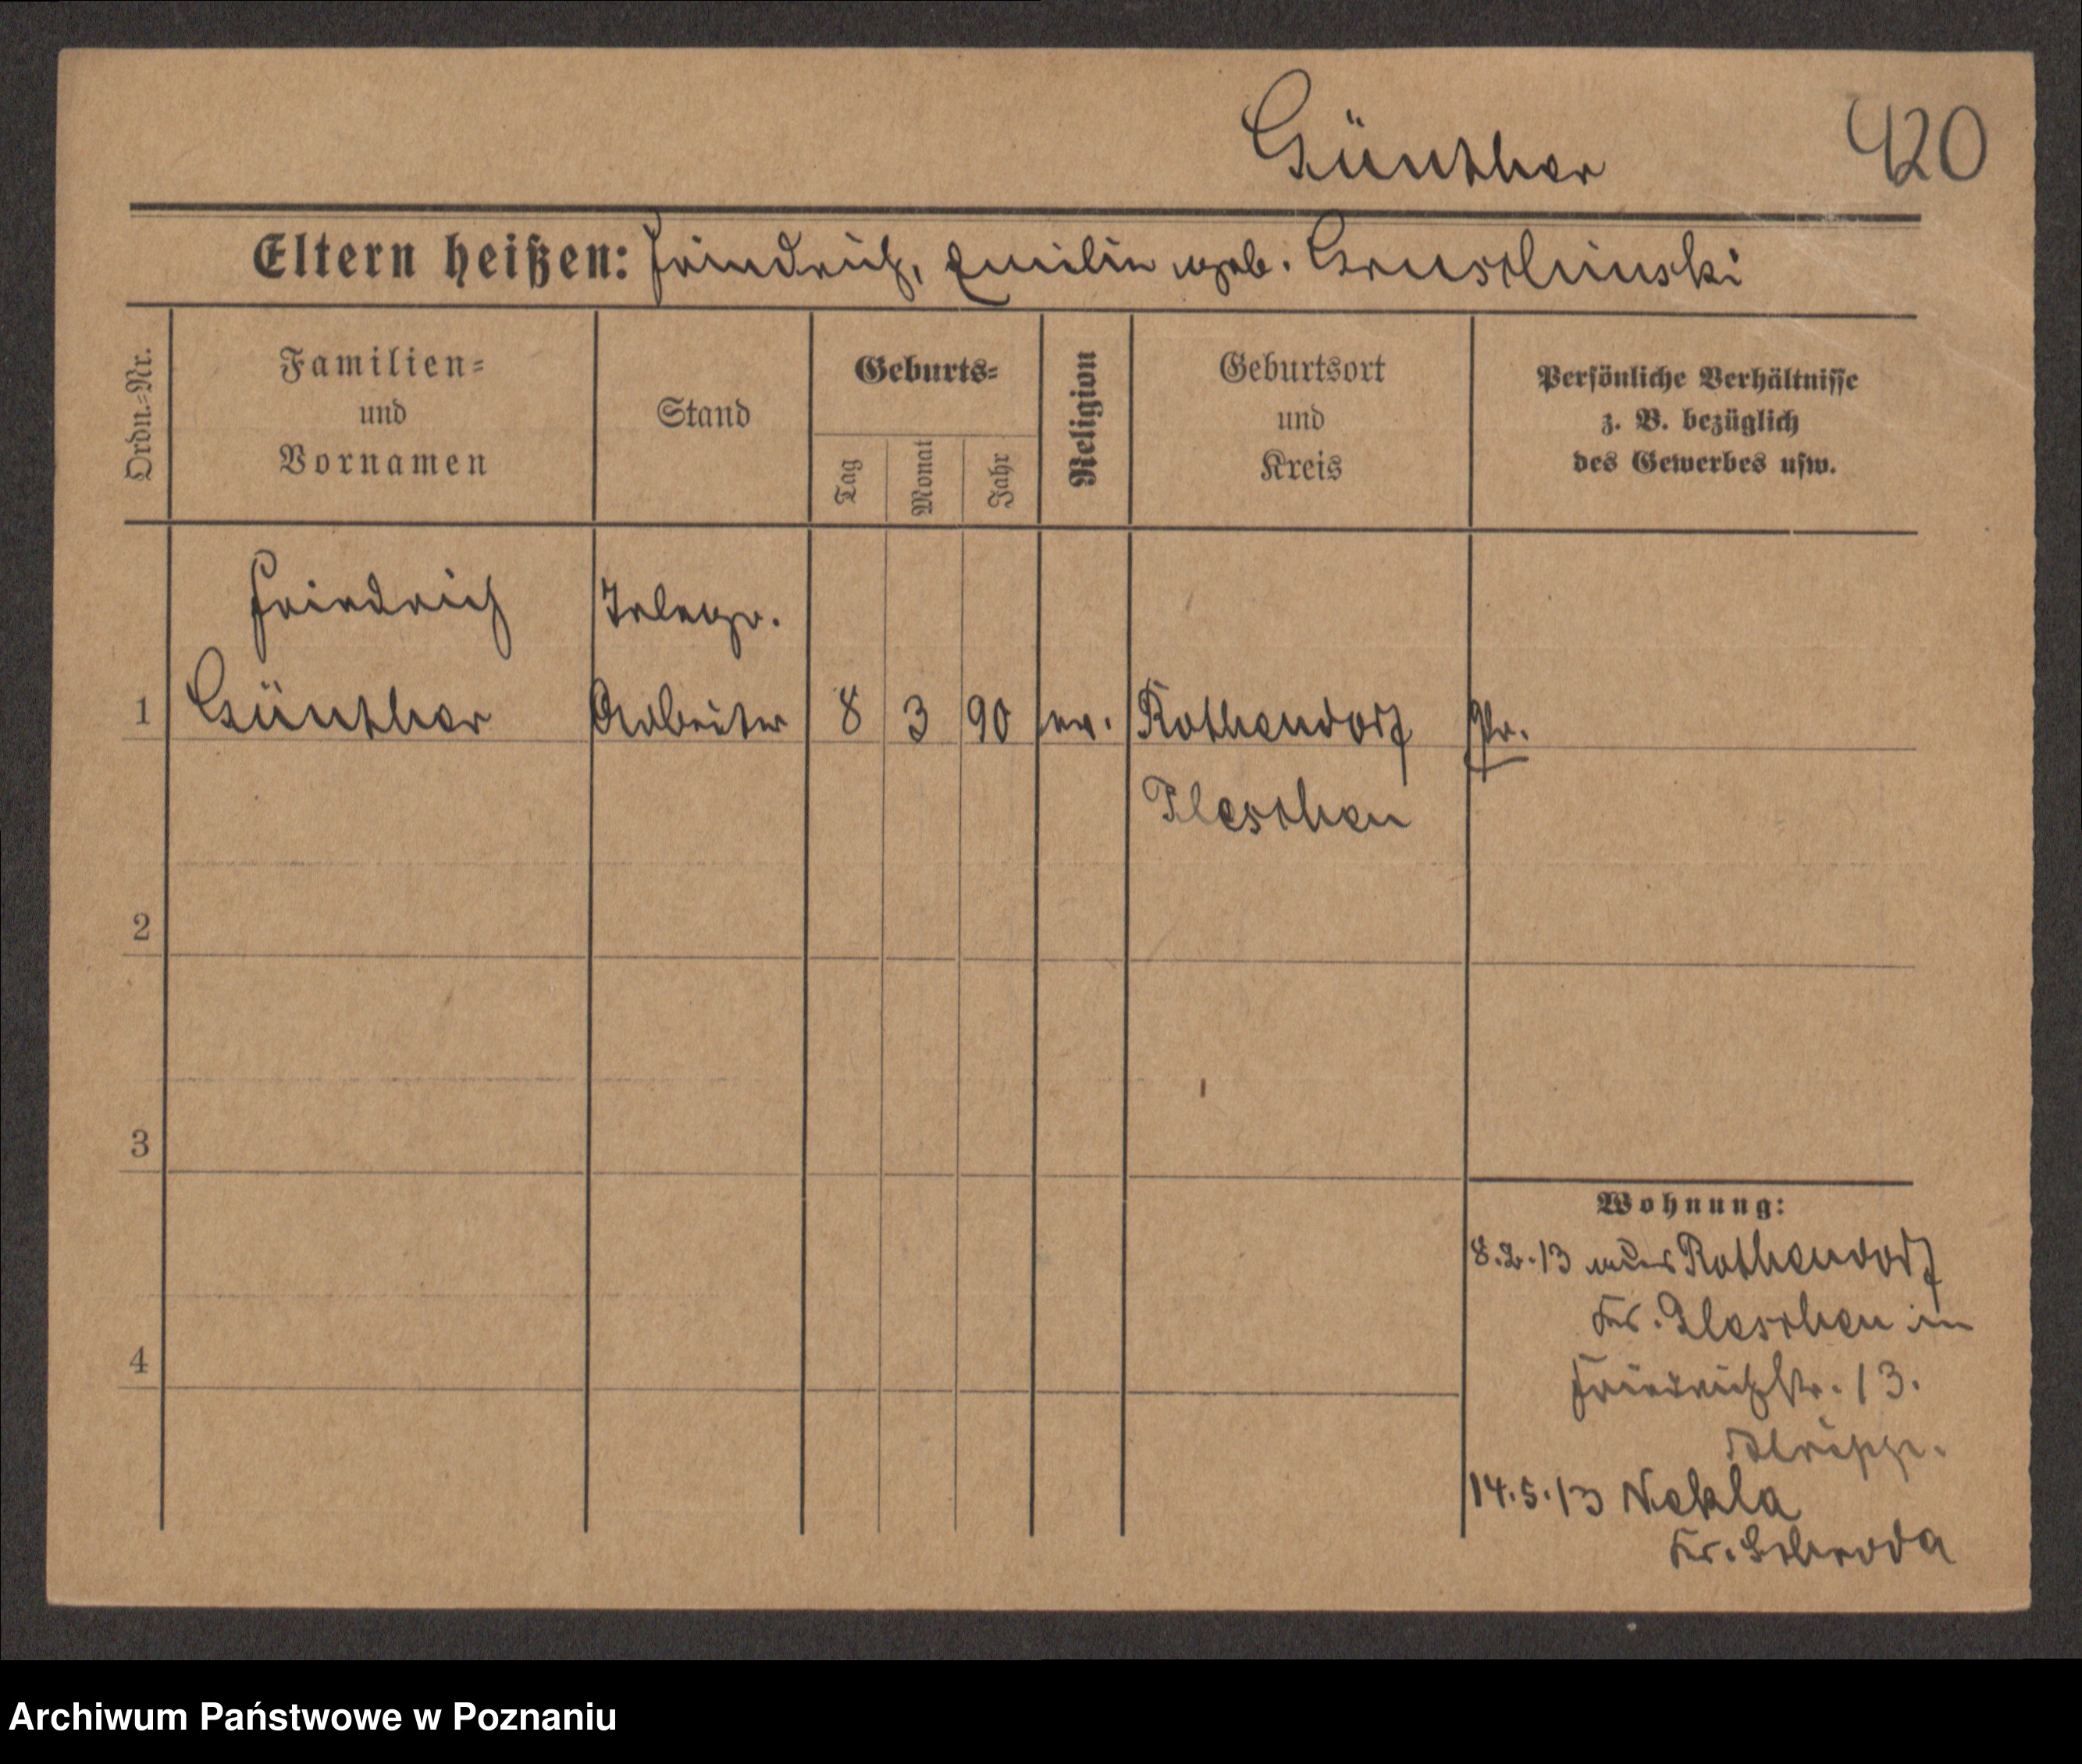 Günther 420
Eltern heißen: Friedrich, Emilie geb. Gruschinski
Ordn.-Nr.
Familien-
und
Vornamen
Stand
Geburts-
Tag
Monat
Jahr
Religion
Geburtsort
und
Kreis
Persönliche Verhältnisse
z. B. bezüglich
des Gewerbes usw.
Friedrich Telegr.
1 Günther Arbeiter 8 3 90 ev. Rothendorf Pr.
Pleschen
2
3
4
Wohnung:
8.2.13 aus Rothendorf
Kr. Pleschen in
Friedrichstr. 13.
14.5.13 Nekla
Kr. Schroda
Archiwum Państwowe w Poznaniu